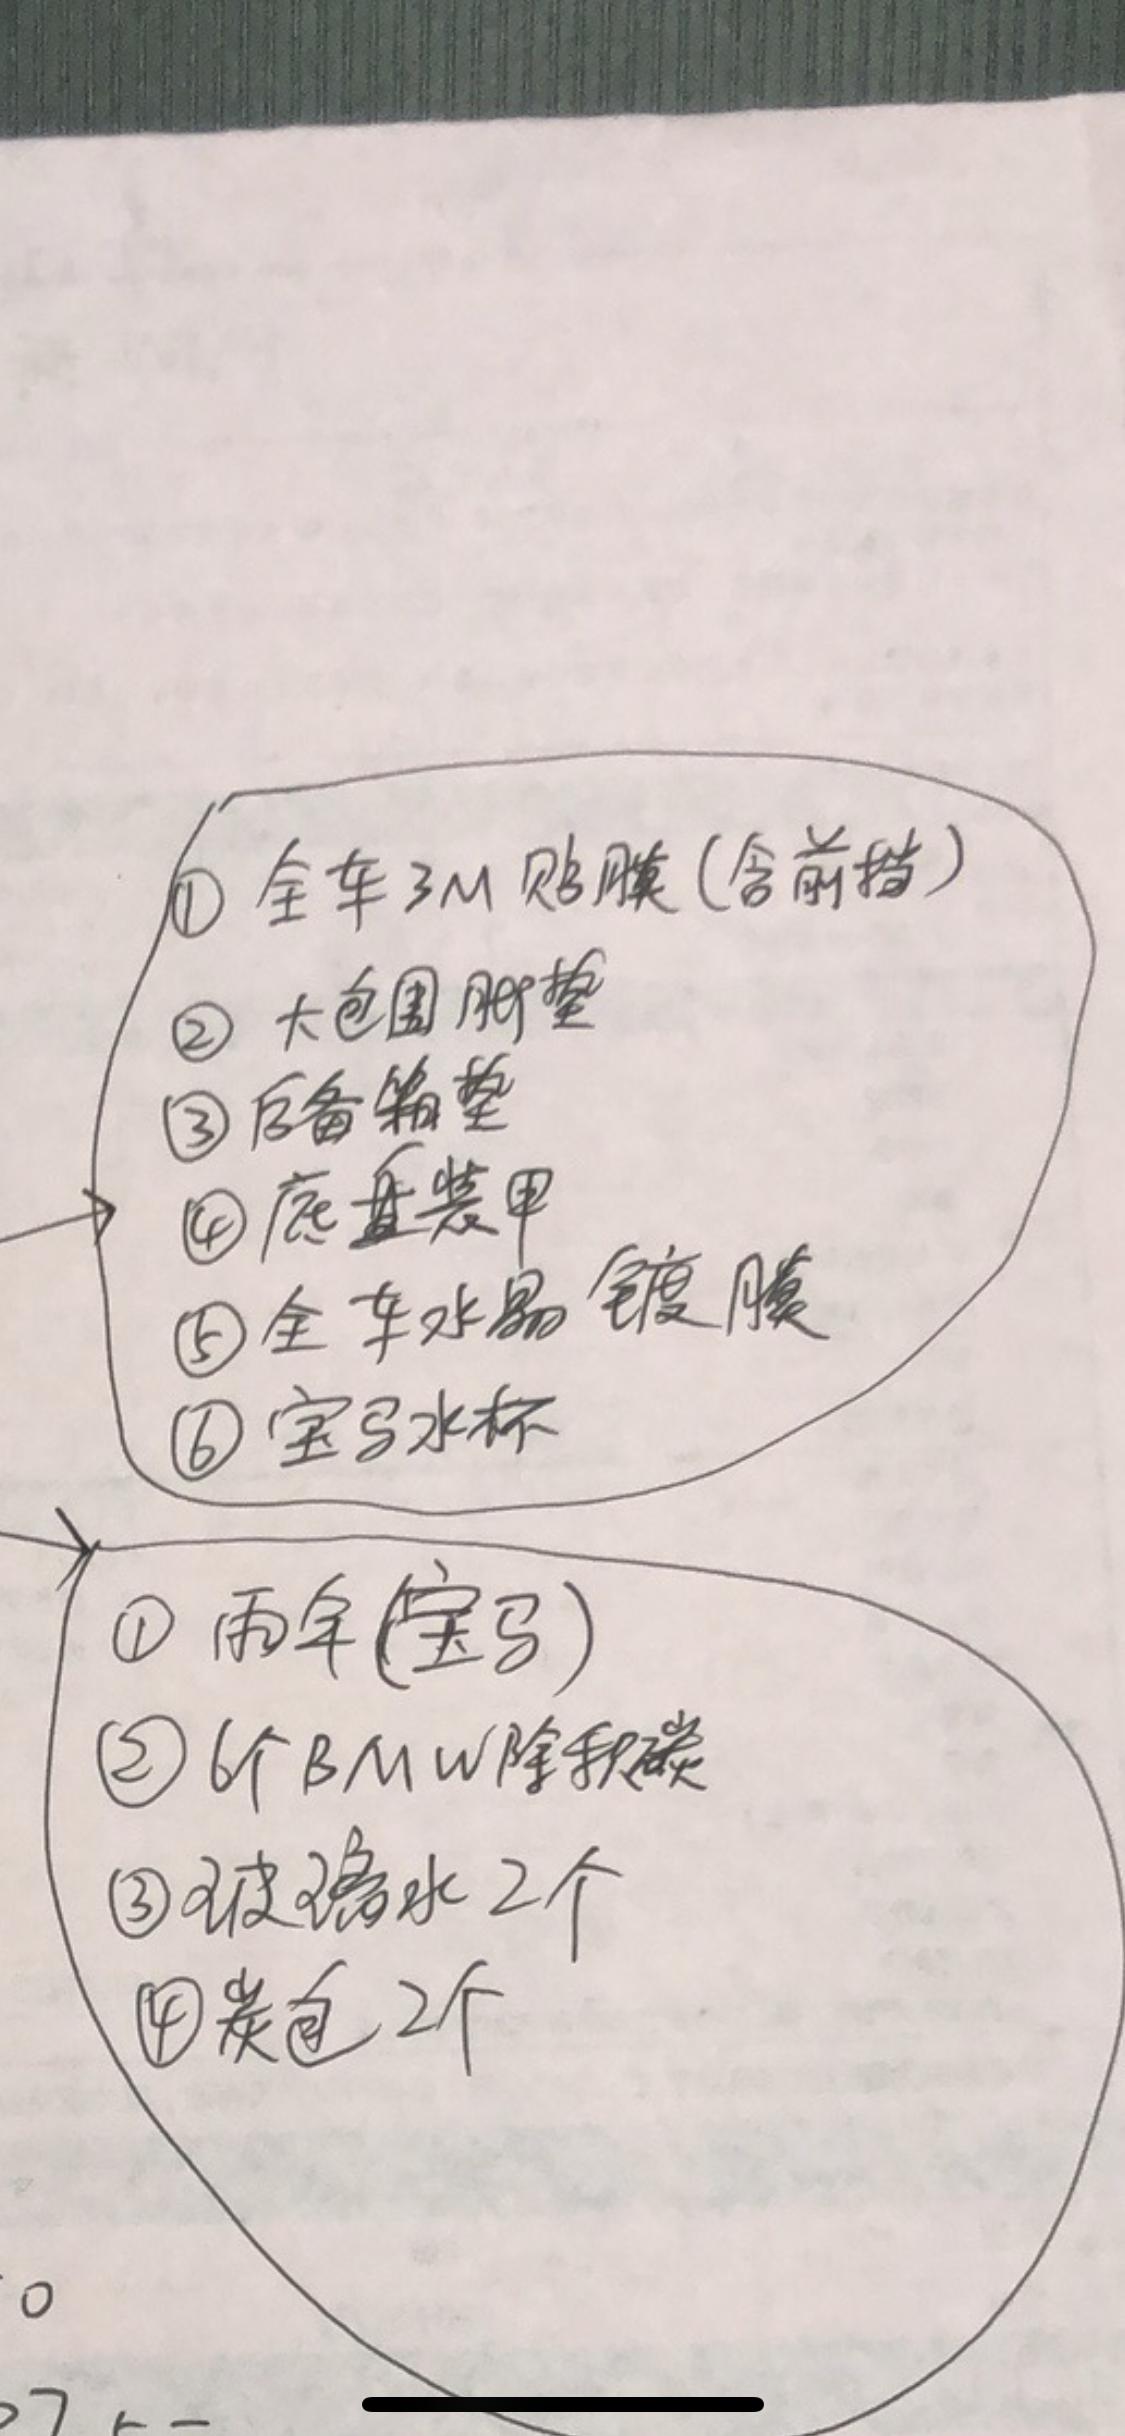 ① 全车3M贴膜(含前挡)
② 大包围脚垫
③ 后备箱垫
④ 底盘装甲
⑤ 全车水晶镀膜
⑥ 宝马水杯
① 雨伞(宝马)
② 6个BMW除积碳
③ 玻璃水2个
④ 炭包2个
0